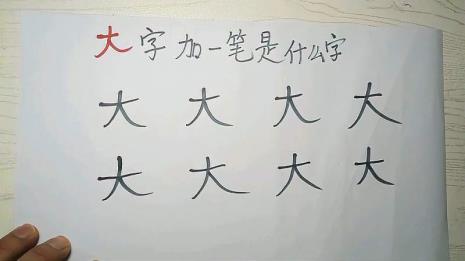 大字加一笔是什么字
大 大 大 大
大 大 大 大